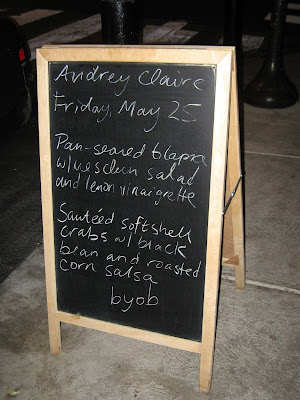 Audrey Claire
Friday, May 25
Pan-seared tilapia
w/ mesclun salad
and lemon vinaigrette
Sautéed softshell
crabs w/ black
bean and roasted
corn salsa
byob